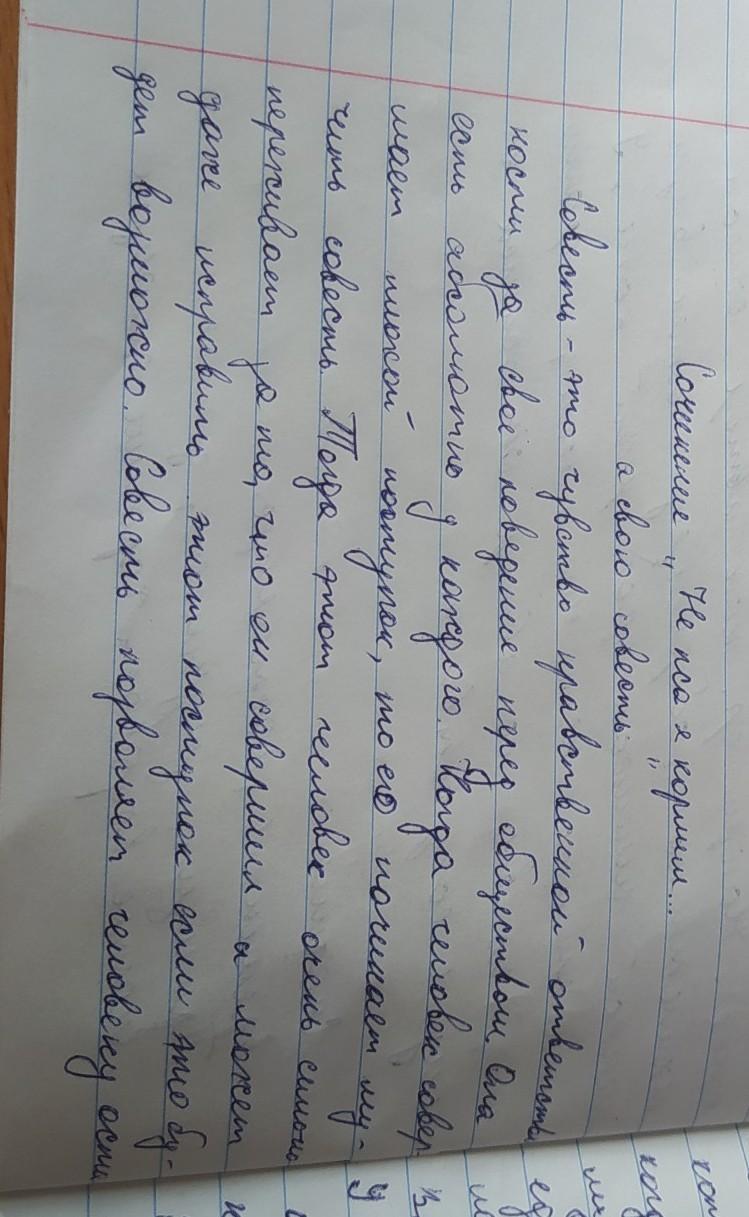 Сочинение „Не пса я кормил...
а свою совесть"
Совесть - это чувство нравственной ответствен
ности за своё поведение перед обществом. Она
есть абсолютно у каждого. Когда человек совер
шает плохой поступок, то его начинает му-
чить совесть. Тогда этот человек очень сильно
переживает за то, что он совершил и может
даже исправить этот поступок если это бу-
дет возможно. Совесть позволяет человеку